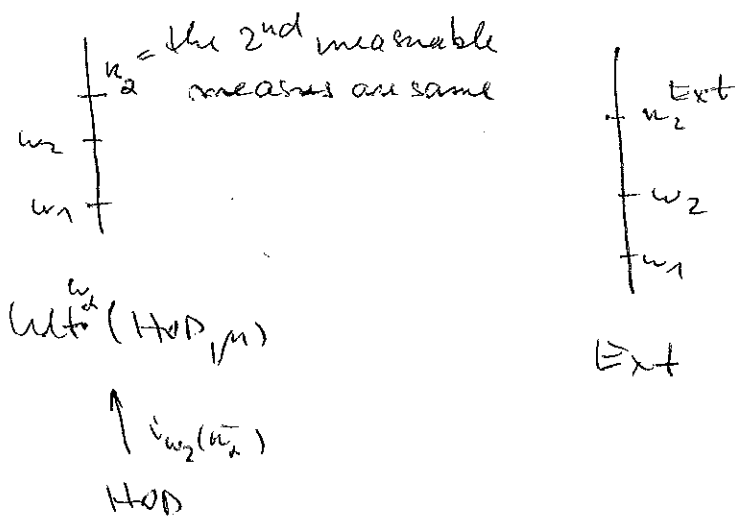 κ₂ = the 2nd measurable
measures are same
ω₂
ω₁
κ₂^Ext
ω₂
ω₁
Ult (HOD, μ)
Ext
↑ i_ω₂
HOD